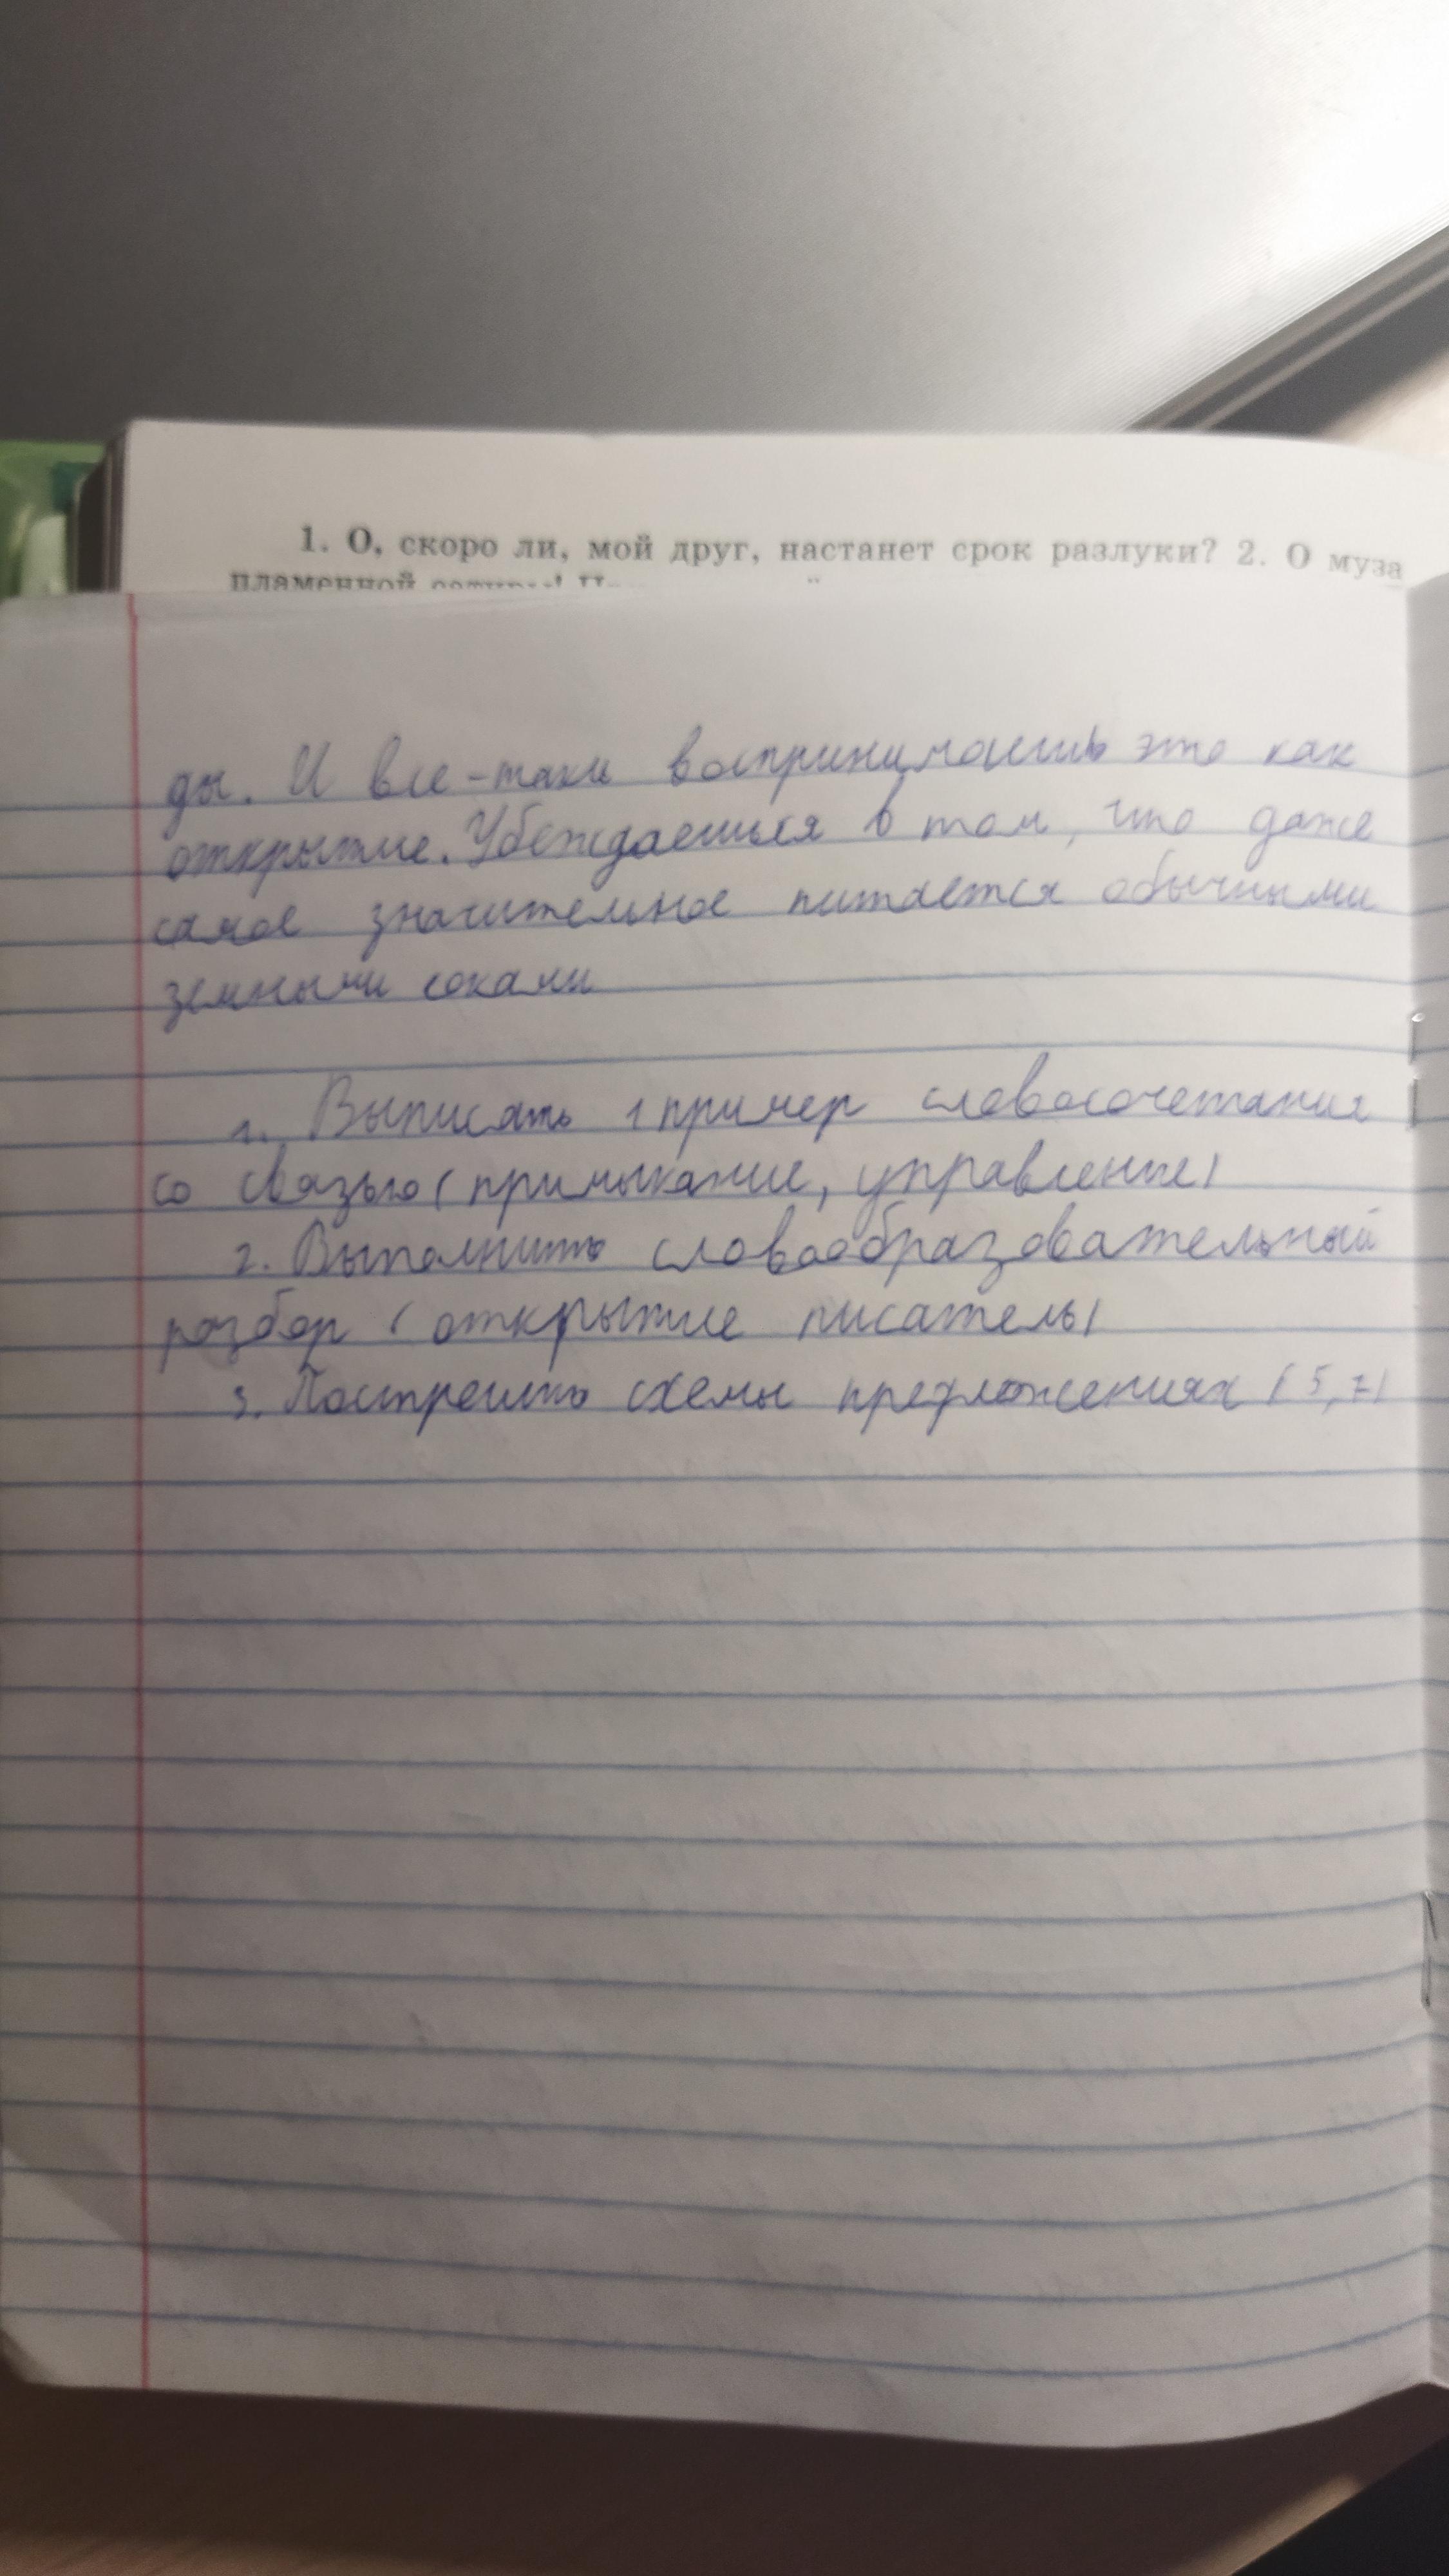 1. О, скоро ли, мой друг, настанет срок разлуки? 2. О муза
пламенной сатиры!
ды. И все-таки воспринимаешь это как
открытие. Убеждаешься в том, что даже
самое значительное питается обычными
земными соками
1. Выписать 1 пример словосочетания
со связью (примыкание, управление)
2. Выполнить словообразовательный
разбор (открытие писатель)
3. Построить схемы предложениях (5,7)